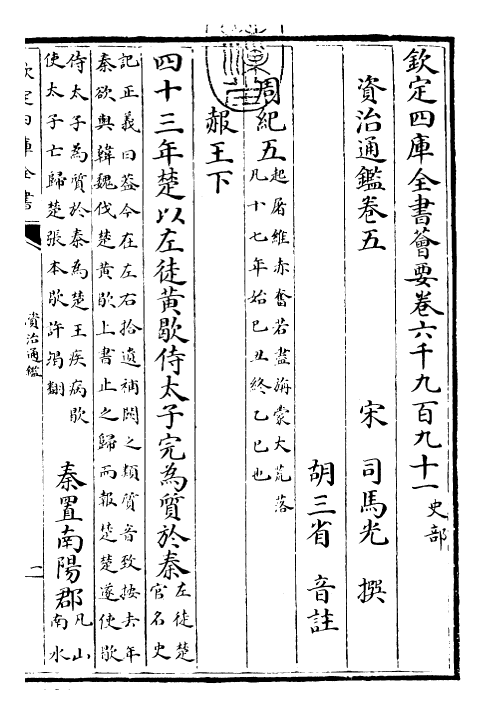 欽定四庫全書薈要卷六千九百九十一 史部
資治通鑑卷五 宋 司馬光 撰
胡三省 音註
周紀五
起屠維赤奮若盡旃蒙大荒落
凡十七年始己丑終乙巳也
赧王下
四十三年楚以左徒黃歇侍太子完為質於秦
左徒楚
官名史
記正義曰葢今在左右拾遺補闕之類質音致按去年
秦欲與韓魏伐楚黃歇上書止之歸而報楚楚遂使歇
侍太子為質於秦為楚王疾病歇
使太子亡歸楚張本歇許竭翻
秦置南陽郡
凡山
南水
欽定四庫全書
資治通鑑